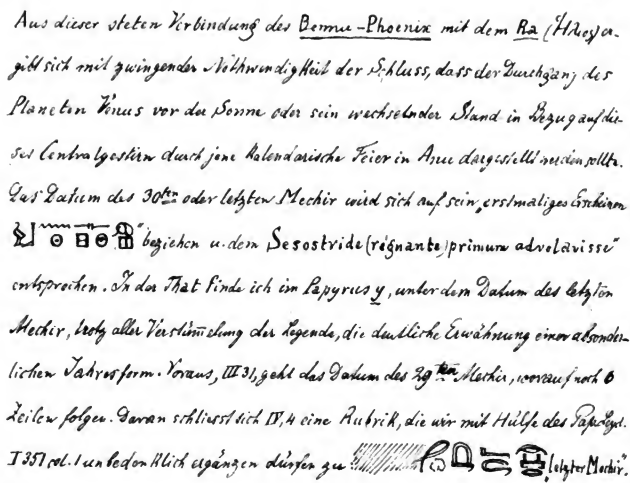 Aus dieser steten Verbindung des Bennu-Phoenix mit dem Ra (Ἥλιος) er-
gibt sich mit zwingender Nothwendigkeit der Schluss, dass der Durchgang des
Planeten Venus vor der Sonne oder sein wechselnder Stand in Bezug auf die-
ses Centralgestirn durch jene Kalendarische Feier in Anu dargestellt werden sollte.
Das Datum des 30ten oder letzten Mechir wird sich auf sein „erstmaliges Erscheinen
" beziehen u. dem „Sesostride (regnante) primum advolavisse"
entsprechen. In der That finde ich im Papyrus y, unter dem Datum des letzten
Mechir, trotz aller Verstümelung der Legende, die deutliche Erwähnung einer absonder-
lichen Jahresform. Voraus, III 31, geht das Datum des 29ten Mechir, worauf noch 6
Zeilen folgen. Daran schliesst sich IV, 4 eine Rubrik, die wir mit Hülfe des Pap. Leyd.
I 351 col. I unbedenklich ergänzen dürfen zu „letzter Mechir".